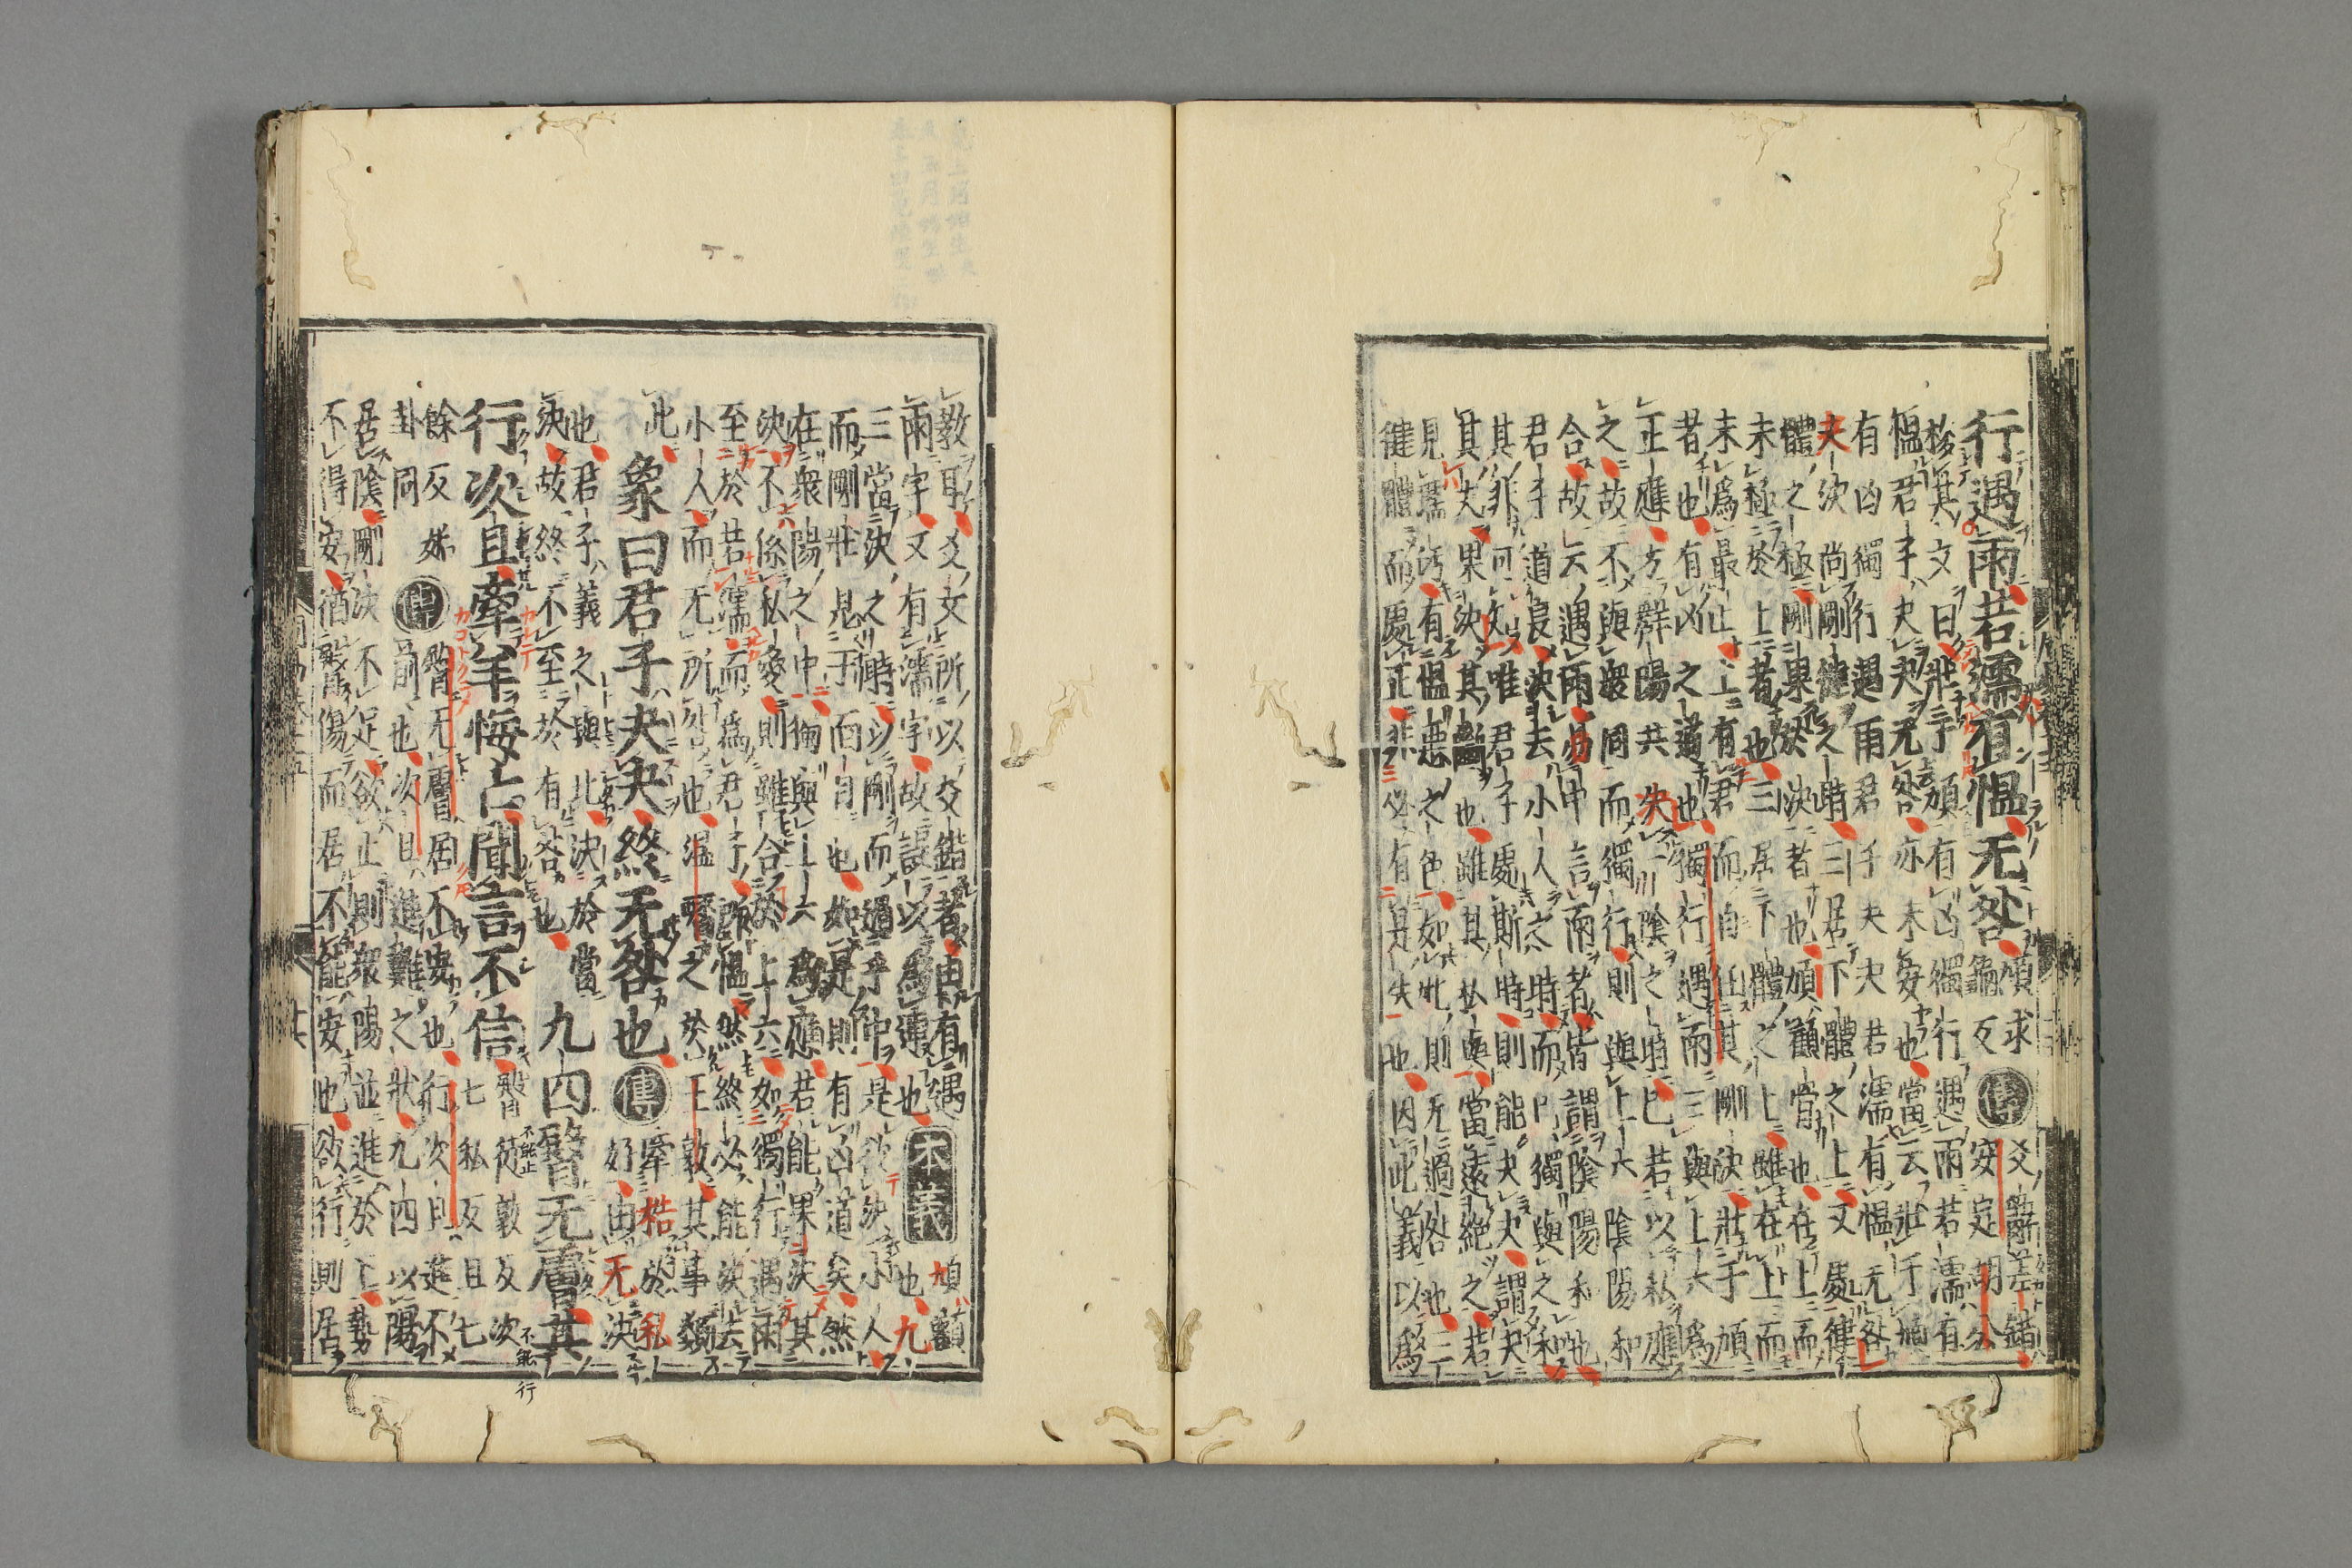 行遇雨若濡有慍无咎
頄求
龜反
傳
爻辭差錯
安定胡公
移其文曰壯于頄有凶獨行遇雨若濡有
慍君子夬夬无咎亦未安也當云壯于頄
有凶獨行遇雨君子夬夬若濡有慍无咎
夬決尚剛健之時三居下體之上又處健
體之極剛果於決者也頄顴骨也在上而
未極於上者也三居下體之上雖在上而
未爲最上上有君而自任其剛決壯于頄
者也有凶之道也獨行遇雨三與上六爲
正應方群陽共決一陰之時已若以私應
之故不與衆同而獨行則與上六陰陽和
合故云遇雨易中言雨者皆謂陰陽和也
君子道長決去小人之時而已獨與之和
其非可知唯君子處斯時則能夬夬謂夬
其夬果決其斷也雖其私與當遠絶之若
見濡汚有慍惡之色如此則无過咎也三
健體而處正非必有是失也因此義以爲
教耳爻文所以交錯者由有遇
雨字又有濡字故誤以爲連也
本義
頄顴也九
三當決之時以剛而過乎中是欲決小人
而剛壯見于面目也如是則有凶道矣然
在衆陽之中獨與上六爲應若能果決其
決不係私愛則雖合於上六如獨行遇雨
至於若濡而爲君子所慍然終必能決去
小人而无所咎也溫嶠之於王敦其事類
此
象曰君子夬夬終无咎也
傳
牽梏於私
好由无決
也君子義之與比決於當
決故終不至於有咎也
九四臀无膚其
行次且牽羊悔亡聞言不信
臀徒敦反次
七私反且七
餘反姊
卦同
傳
臀无膚居不安也行次且進不
前也次且進難之狀九四以陽
居陰剛決不足欲止則衆陽並進於下勢
不得安猶臀傷而居不能安也欲行則居